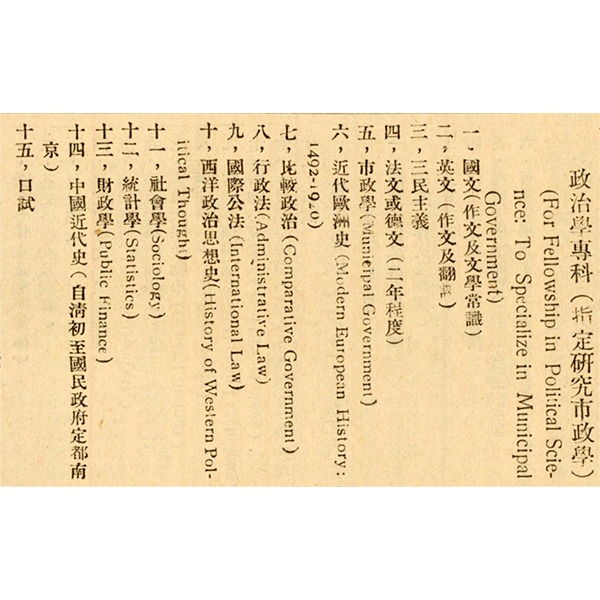 政治學專科（指定研究市政學）
(For Fellowship in Political Scie-
nce: To Specialize in Municipal
Government)
一、國文(作文及文學常識)
二，英文（作文及翻譯）
三，三民主義
四，法文或德文（二年程度）
五，市政學(Municipal Government)
六，近代歐洲史(Modern European History:
1492-1920)
七，比較政治(Comparative Government)
八，行政法(Administrative Law)
九，國際公法(International Law)
十，西洋政治思想史(History of Western Pol-
itical Thought
十一，社會學(Sociology)
十二，統計學(Statistics)
十三，財政學(Public Finance)
十四，中國近代史（自清初至國民政府定都南
京）
十五，口試